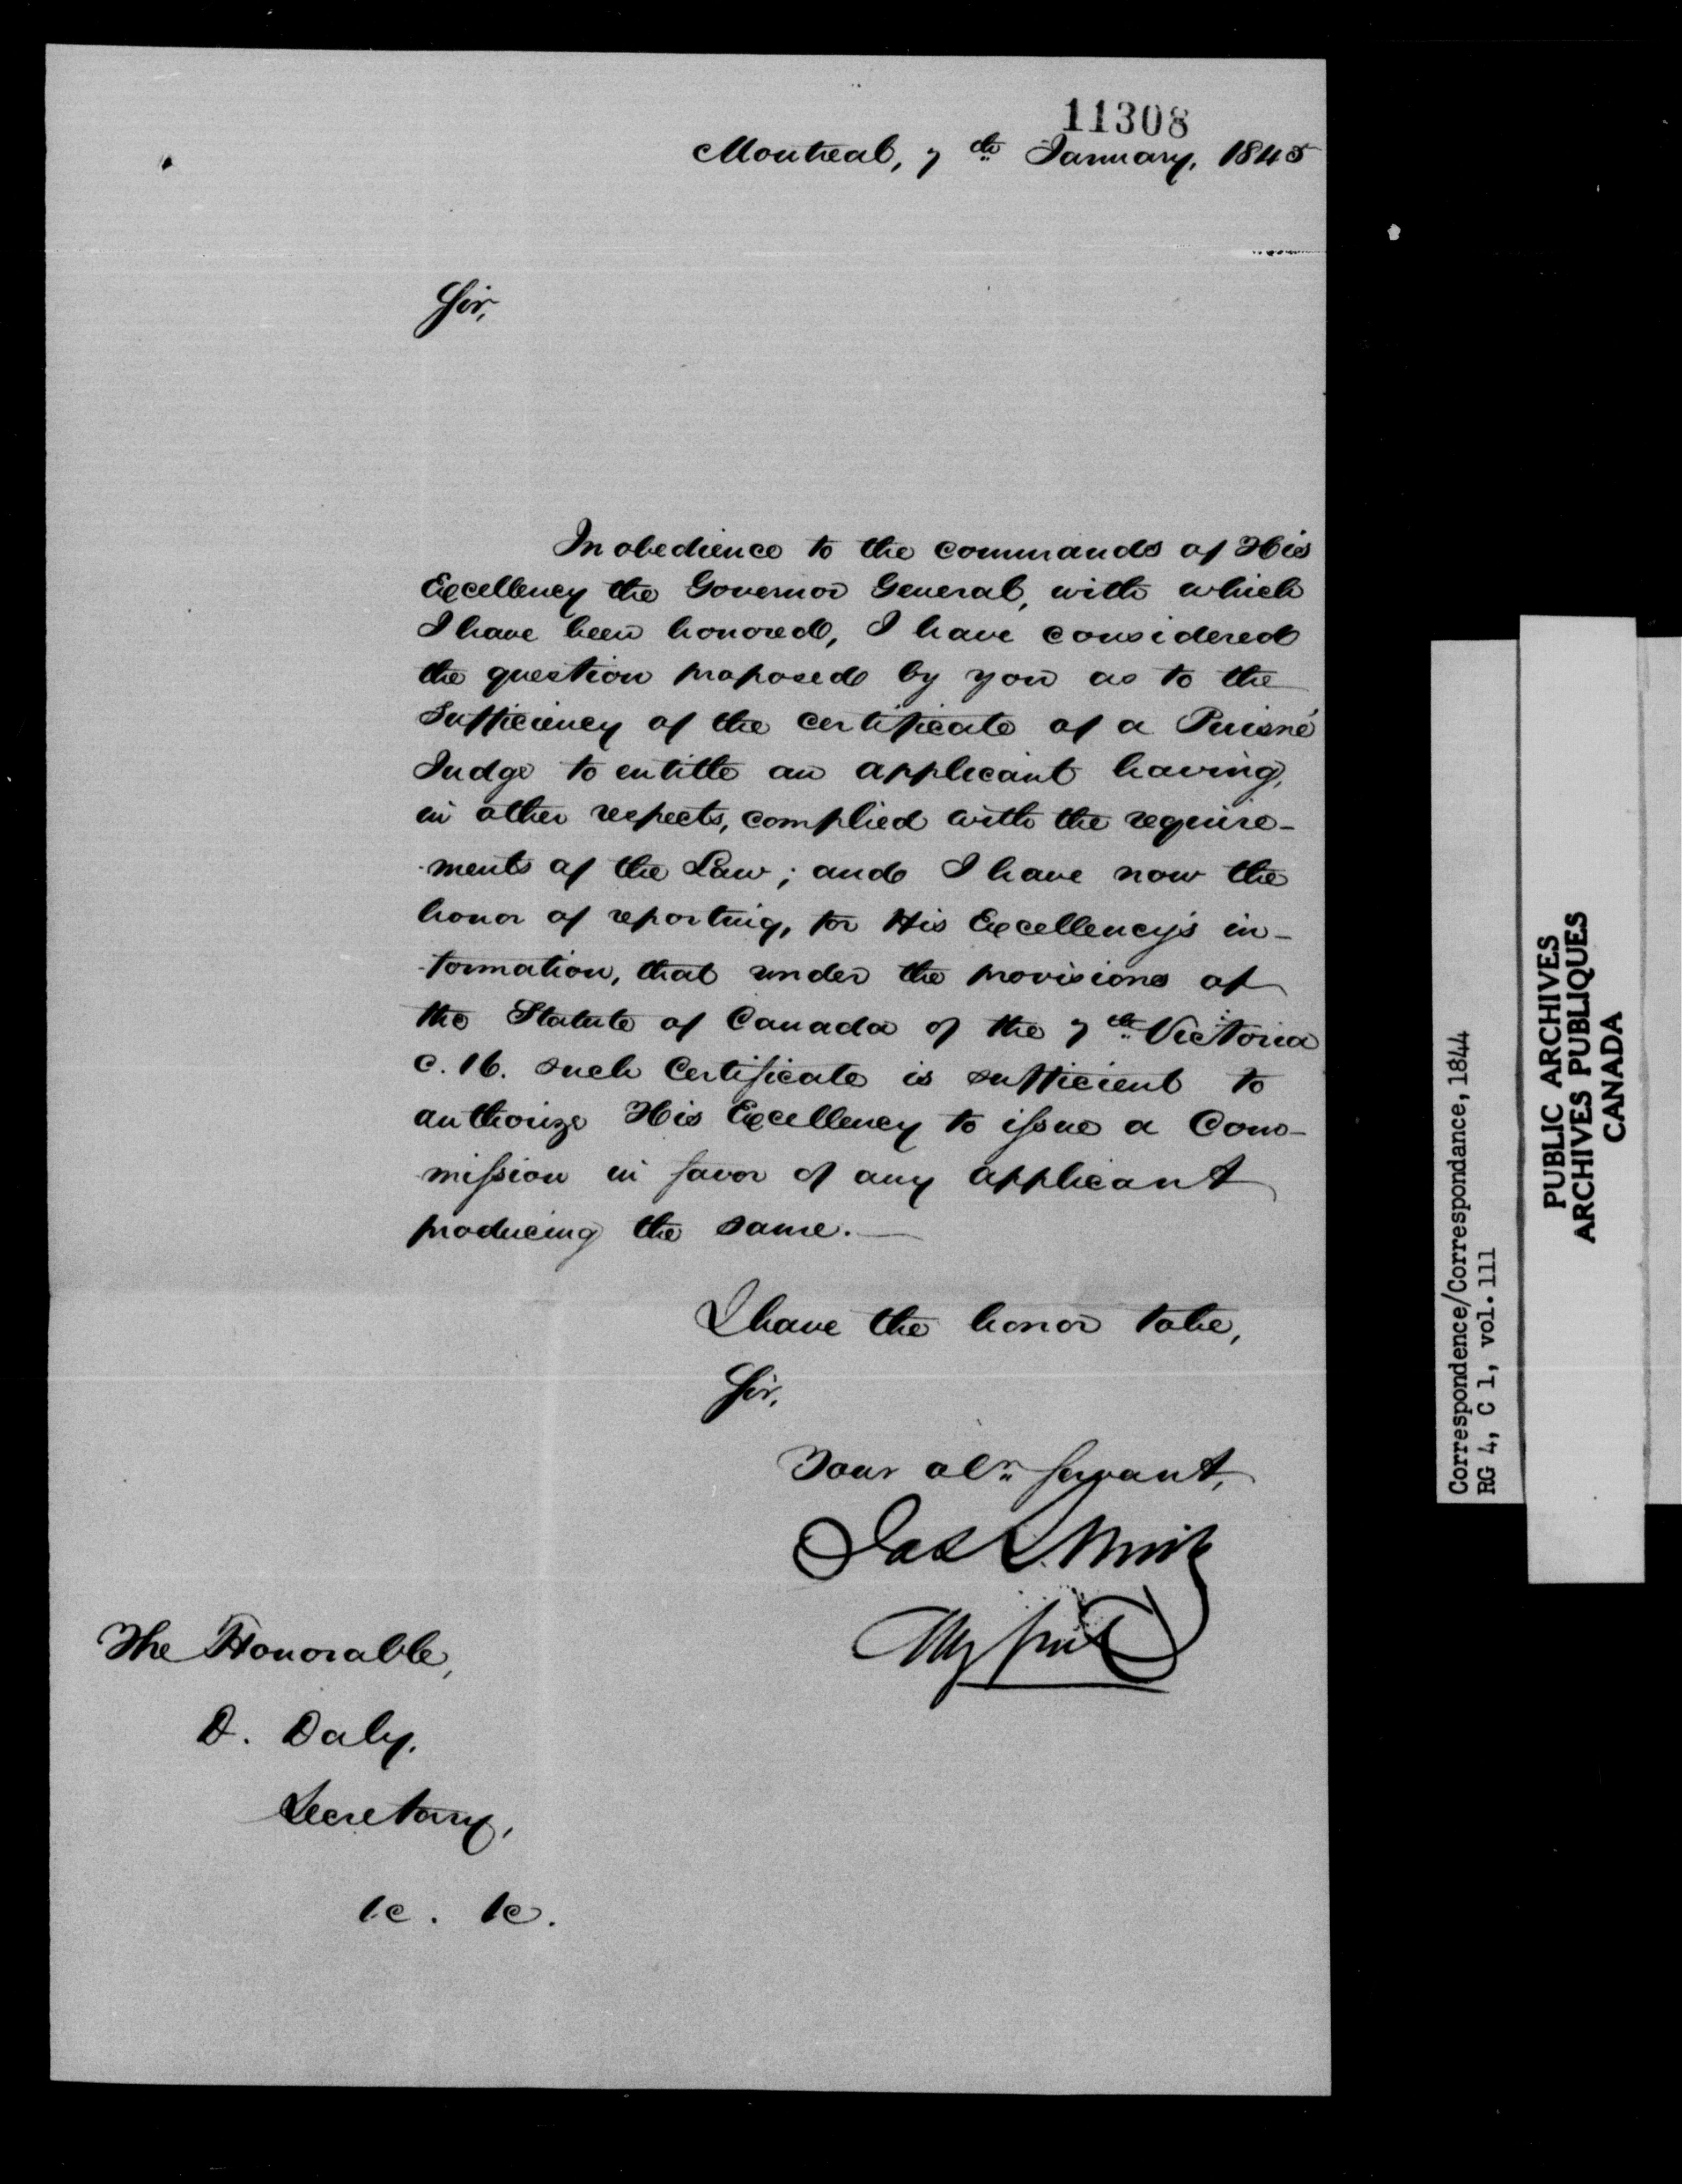 11308
Montreal, 7th January, 1845
Sir,
In obedience to the commands of His
Excellency the Governor General, with which
I have been honored, I have considered
the question proposed by you as to the
sufficiency of the certificate of a Puisné
Judge to entitle an applicant having,
in other respects, complied with the require-
-ments of the Law; and I have now the
honor of reporting, for His Excellency's in-
-formation, that under the provisions of
the Statute of Canada of the 7th Victoria
c. 16. such Certificate is sufficient to
authorize His Excellency to issue a Com-
-mission in favor of any applicant
producing the same.—
I have the honor to be,
Sir,
Your obt servant,
Jas Smith
Atty Genl
The Honorable,
D. Daly,
Secretary,
&c. &c.
Correspondence/Correspondance, 1844
RG 4, C 1, vol. 111
PUBLIC ARCHIVES
ARCHIVES PUBLIQUES
CANADA